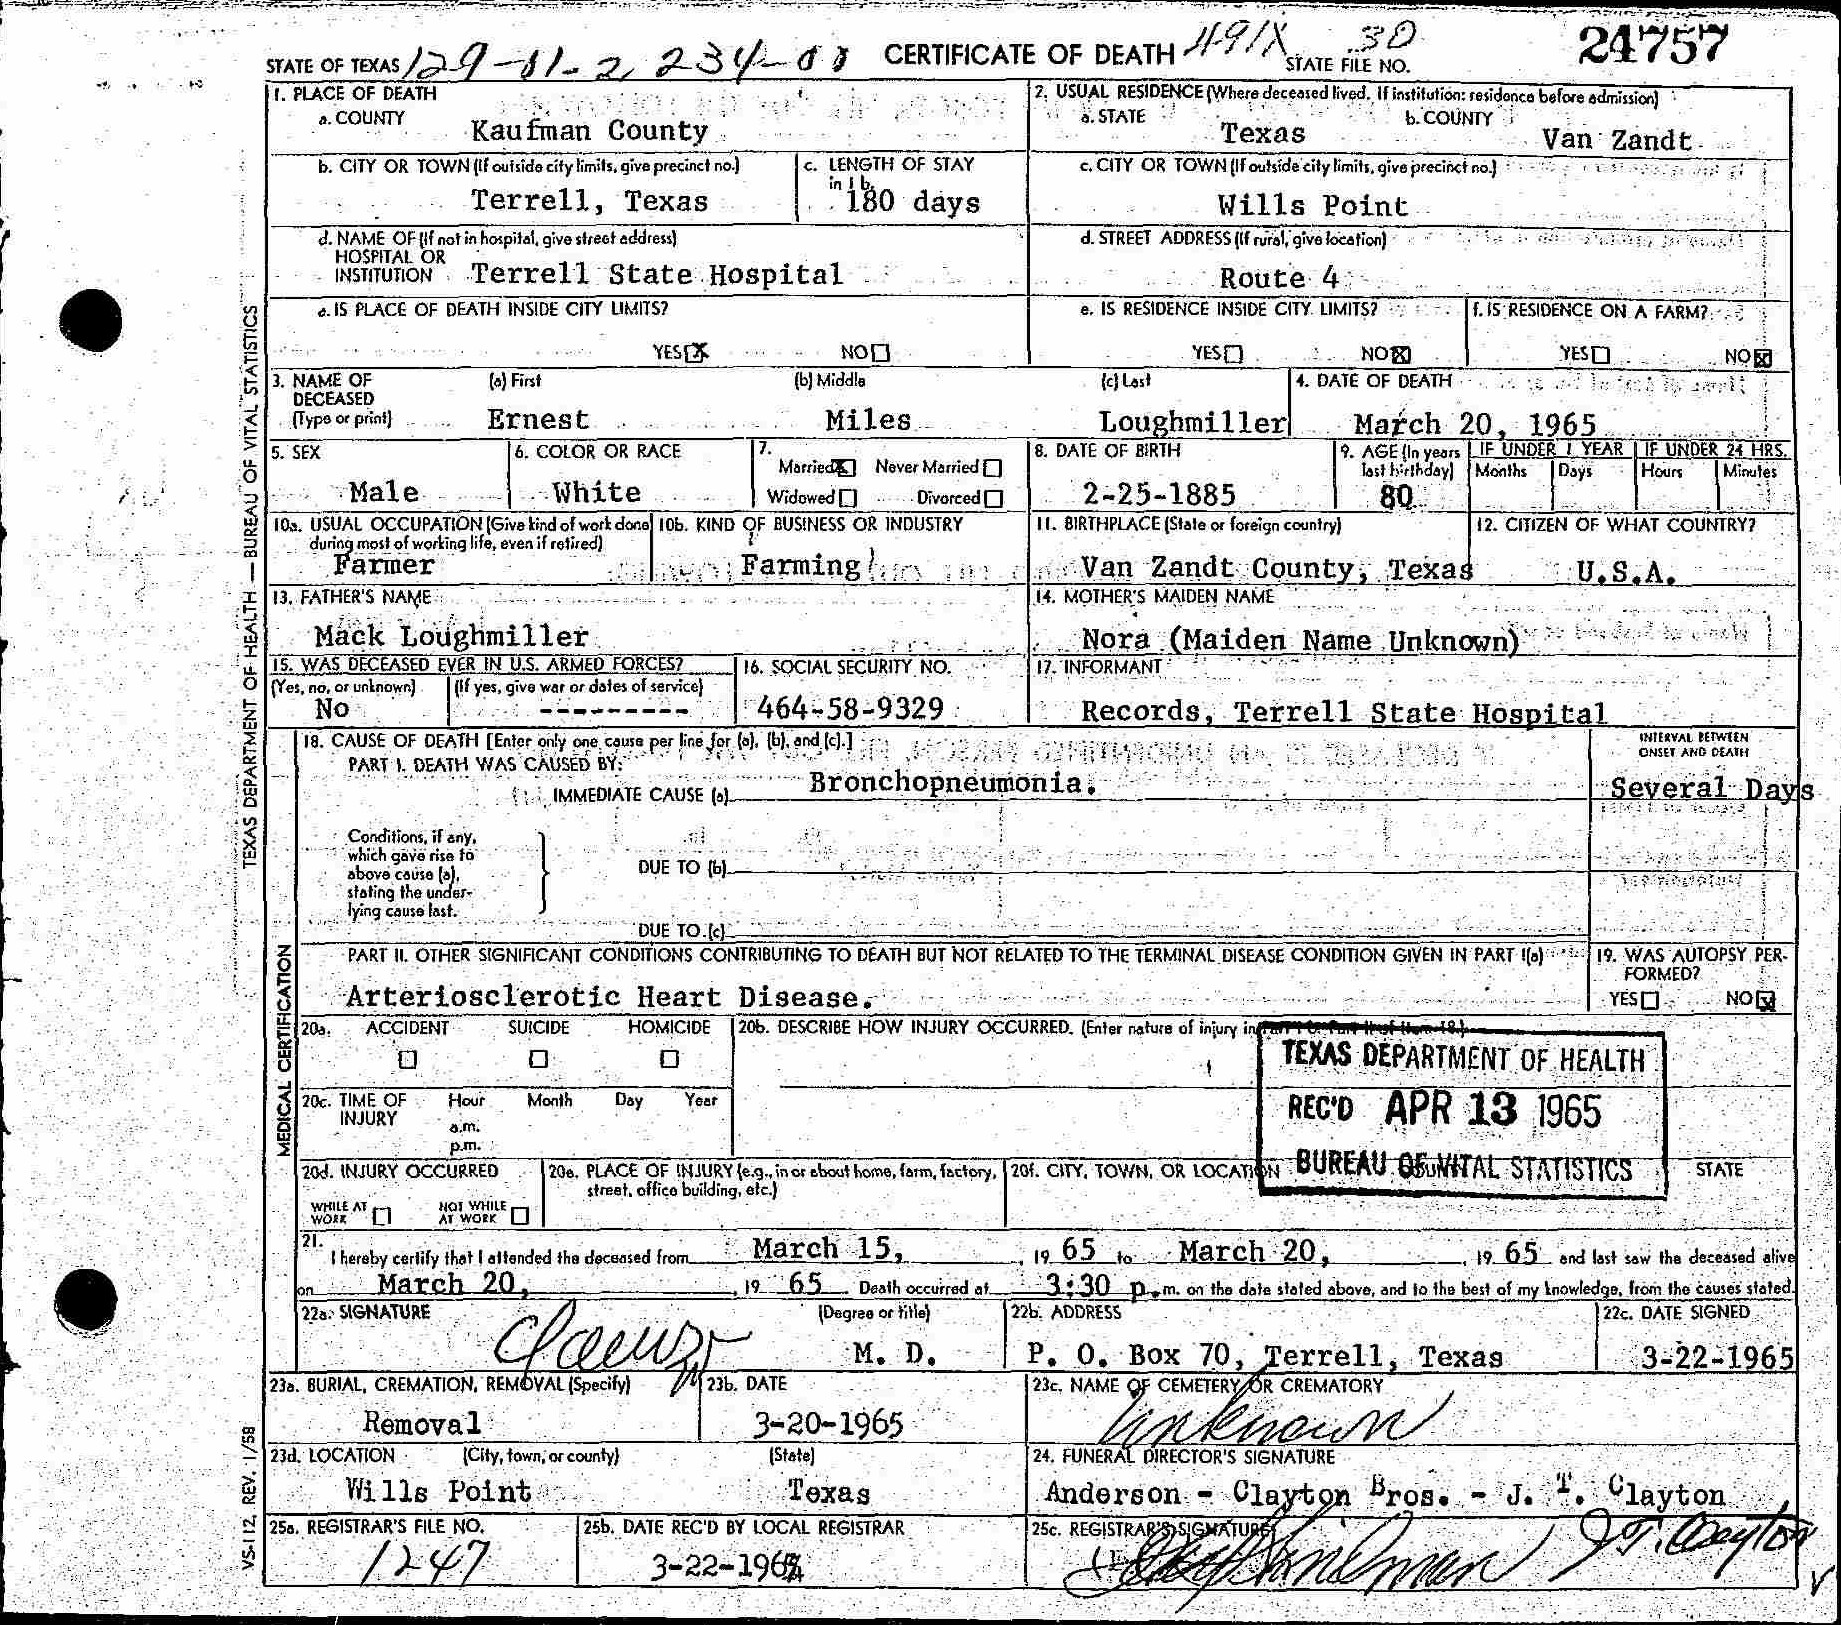 STATE OF TEXAS 129-01-2, 234-01 CERTIFICATE OF DEATH 491X 30 STATE FILE NO. 24757
1. PLACE OF DEATH
a. COUNTY Kaufman County
2. USUAL RESIDENCE (Where deceased lived. If institution: residence before admission)
a. STATE Texas b. COUNTY Van Zandt
b. CITY OR TOWN (If outside city limits, give precinct no.) Terrell, Texas
c. LENGTH OF STAY in 1 b. 180 days
c. CITY OR TOWN (If outside city limits, give precinct no.) Wills Point
d. NAME OF (If not in hospital, give street address)
HOSPITAL OR
INSTITUTION Terrell State Hospital
d. STREET ADDRESS (If rural, give location) Route 4
e. IS PLACE OF DEATH INSIDE CITY LIMITS?
YES X NO
e. IS RESIDENCE INSIDE CITY LIMITS?
YES NO X
f. IS RESIDENCE ON A FARM?
YES NO X
3. NAME OF DECEASED (Type or print)
(a) First Ernest (b) Middle Miles (c) Last Loughmiller
4. DATE OF DEATH March 20, 1965
5. SEX Male
6. COLOR OR RACE White
7. Married X Never Married
Widowed Divorced
8. DATE OF BIRTH 2-25-1885
9. AGE (In years last birthday) 80
IF UNDER 1 YEAR Months Days
IF UNDER 24 HRS. Hours Minutes
10a. USUAL OCCUPATION (Give kind of work done during most of working life, even if retired) Farmer
10b. KIND OF BUSINESS OR INDUSTRY Farming
11. BIRTHPLACE (State or foreign country) Van Zandt County, Texas
12. CITIZEN OF WHAT COUNTRY? U.S.A.
13. FATHER'S NAME Mack Loughmiller
14. MOTHER'S MAIDEN NAME Nora (Maiden Name Unknown)
15. WAS DECEASED EVER IN U.S. ARMED FORCES?
(Yes, no, or unknown) No
(If yes, give war or dates of service) ---------
16. SOCIAL SECURITY NO. 464-58-9329
17. INFORMANT Records, Terrell State Hospital
18. CAUSE OF DEATH [Enter only one cause per line for (a), (b), and (c).]
PART I. DEATH WAS CAUSED BY:
IMMEDIATE CAUSE (a) Bronchopneumonia.
INTERVAL BETWEEN ONSET AND DEATH
Several Days
Conditions, if any, which gave rise to above cause (a), stating the underlying cause last.
DUE TO (b)
DUE TO (c)
PART II. OTHER SIGNIFICANT CONDITIONS CONTRIBUTING TO DEATH BUT NOT RELATED TO THE TERMINAL DISEASE CONDITION GIVEN IN PART I(a)
Arteriosclerotic Heart Disease.
19. WAS AUTOPSY PERFORMED?
YES NO X
20a. ACCIDENT SUICIDE HOMICIDE
20b. DESCRIBE HOW INJURY OCCURRED. (Enter nature of injury in Part I or Part II of Item 18.)
TEXAS DEPARTMENT OF HEALTH
REC'D APR 13 1965
BUREAU OF VITAL STATISTICS
20c. TIME OF INJURY Hour Month Day Year
a.m.
p.m.
20d. INJURY OCCURRED
WHILE AT WORK NOT WHILE AT WORK
20e. PLACE OF INJURY (e.g., in or about home, farm, factory, street, office building, etc.)
20f. CITY, TOWN, OR LOCATION COUNTY STATE
21. I hereby certify that I attended the deceased from March 15, 19 65 to March 20, 19 65 and last saw the deceased alive
on March 20, 19 65. Death occurred at 3:30 p.m. on the date stated above, and to the best of my knowledge, from the causes stated.
22a. SIGNATURE (Degree or title) M. D.
22b. ADDRESS P. O. Box 70, Terrell, Texas
22c. DATE SIGNED 3-22-1965
23a. BURIAL, CREMATION, REMOVAL (Specify) Removal
23b. DATE 3-20-1965
23c. NAME OF CEMETERY OR CREMATORY Unknown
23d. LOCATION (City, town, or county) Wills Point (State) Texas
24. FUNERAL DIRECTOR'S SIGNATURE Anderson - Clayton Bros. - J. T. Clayton
J.T. Clayton
25a. REGISTRAR'S FILE NO. 1247
25b. DATE REC'D BY LOCAL REGISTRAR 3-22-1965
25c. REGISTRAR'S SIGNATURE
TEXAS DEPARTMENT OF HEALTH — BUREAU OF VITAL STATISTICS
MEDICAL CERTIFICATION
VS-112, REV. 1/58